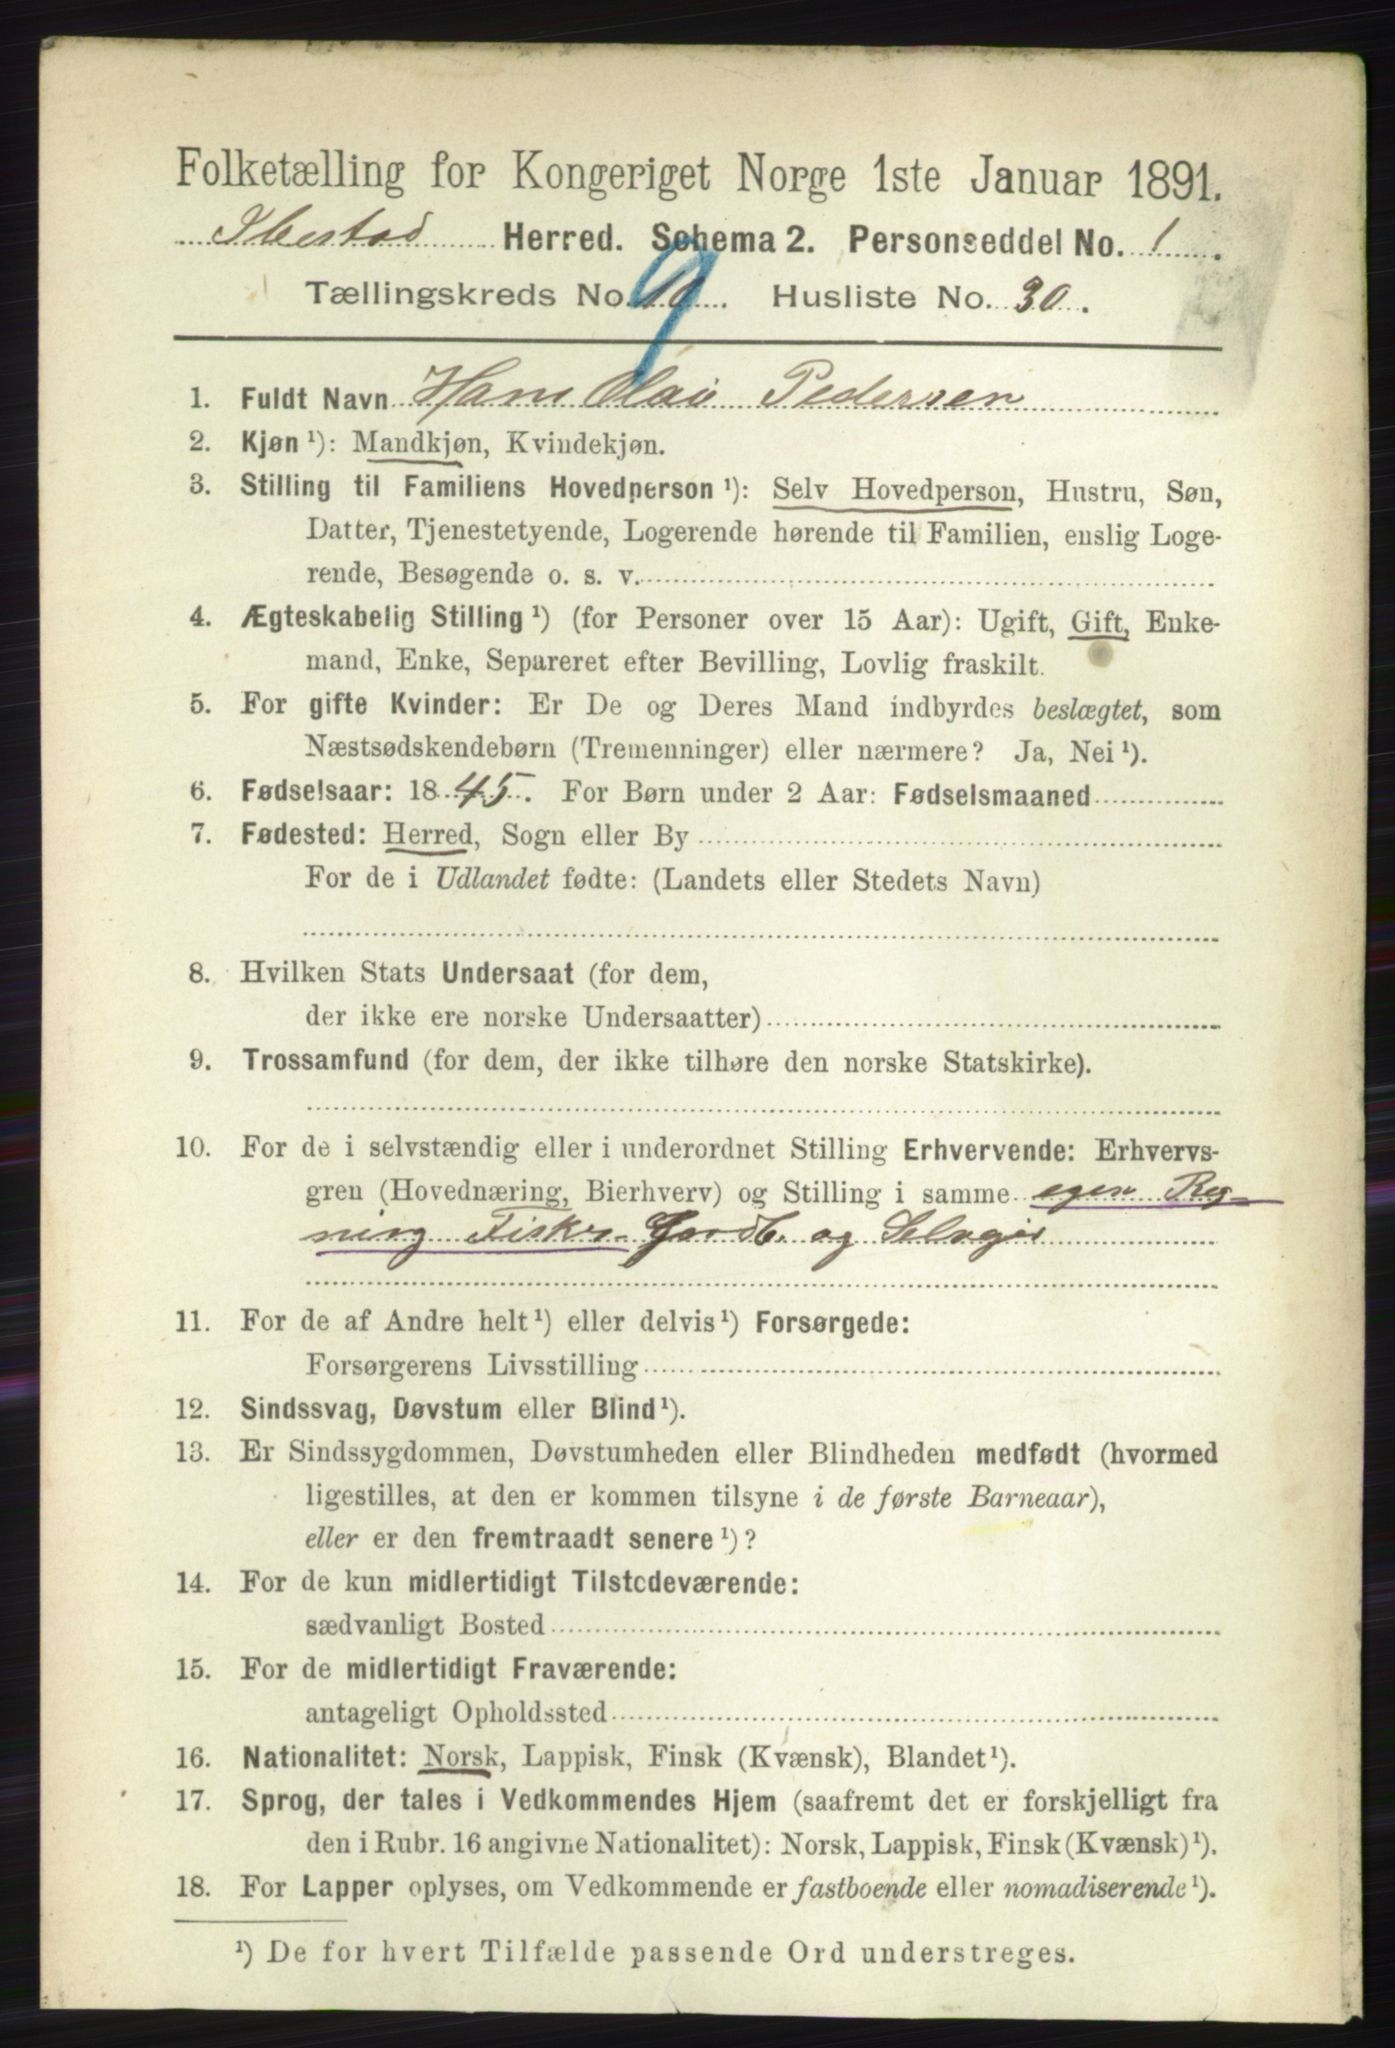 Folketælling for Kongeriget Norge 1ste Januar 1891.
Ibestad Herred. Schema 2. Personseddel No. 1.
Tællingskreds No. 10. 9 Husliste No. 30.
1. Fuldt Navn Hans Olai Pedersen
2. Kjøn ¹): Mandkjøn, Kvindekjøn.
3. Stilling til Familiens Hovedperson ¹): Selv Hovedperson, Hustru, Søn,
Datter, Tjenestetyende, Logerende hørende til Familien, enslig Loge-
rende, Besøgende o. s. v.
4. Ægteskabelig Stilling ¹) (for Personer over 15 Aar): Ugift, Gift, Enke-
mand, Enke, Separeret efter Bevilling, Lovlig fraskilt.
5. For gifte Kvinder: Er De og Deres Mand indbyrdes beslægtet, som
Næstsødskendebørn (Tremenninger) eller nærmere? Ja, Nei ¹).
6. Fødselsaar: 1845. For Børn under 2 Aar: Fødselsmaaned
7. Fødested: Herred, Sogn eller By
For de i Udlandet fødte: (Landets eller Stedets Navn)
8. Hvilken Stats Undersaat (for dem,
der ikke ere norske Undersaatter)
9. Trossamfund (for dem, der ikke tilhøre den norske Statskirke).
10. For de i selvstændig eller i underordnet Stilling Erhvervende: Erhvervs-
gren (Hovednæring, Bierhverv) og Stilling i samme egen Reg-
ning Fisker Gardb. og Selvejer
11. For de af Andre helt ¹) eller delvis ¹) Forsørgede:
Forsørgerens Livsstilling
12. Sindssvag, Døvstum eller Blind ¹).
13. Er Sindssygdommen, Døvstumheden eller Blindheden medfødt (hvormed
ligestilles, at den er kommen tilsyne i de første Barneaar),
eller er den fremtraadt senere ¹)?
14. For de kun midlertidigt Tilstedeværende:
sædvanligt Bosted
15. For de midlertidigt Fraværende:
antageligt Opholdssted
16. Nationalitet: Norsk, Lappisk, Finsk (Kvænsk), Blandet ¹).
17. Sprog, der tales i Vedkommendes Hjem (saafremt det er forskjelligt fra
den i Rubr. 16 angivne Nationalitet): Norsk, Lappisk, Finsk (Kvænsk) ¹).
18. For Lapper oplyses, om Vedkommende er fastboende eller nomadiserende ¹).
¹) De for hvert Tilfælde passende Ord understreges.